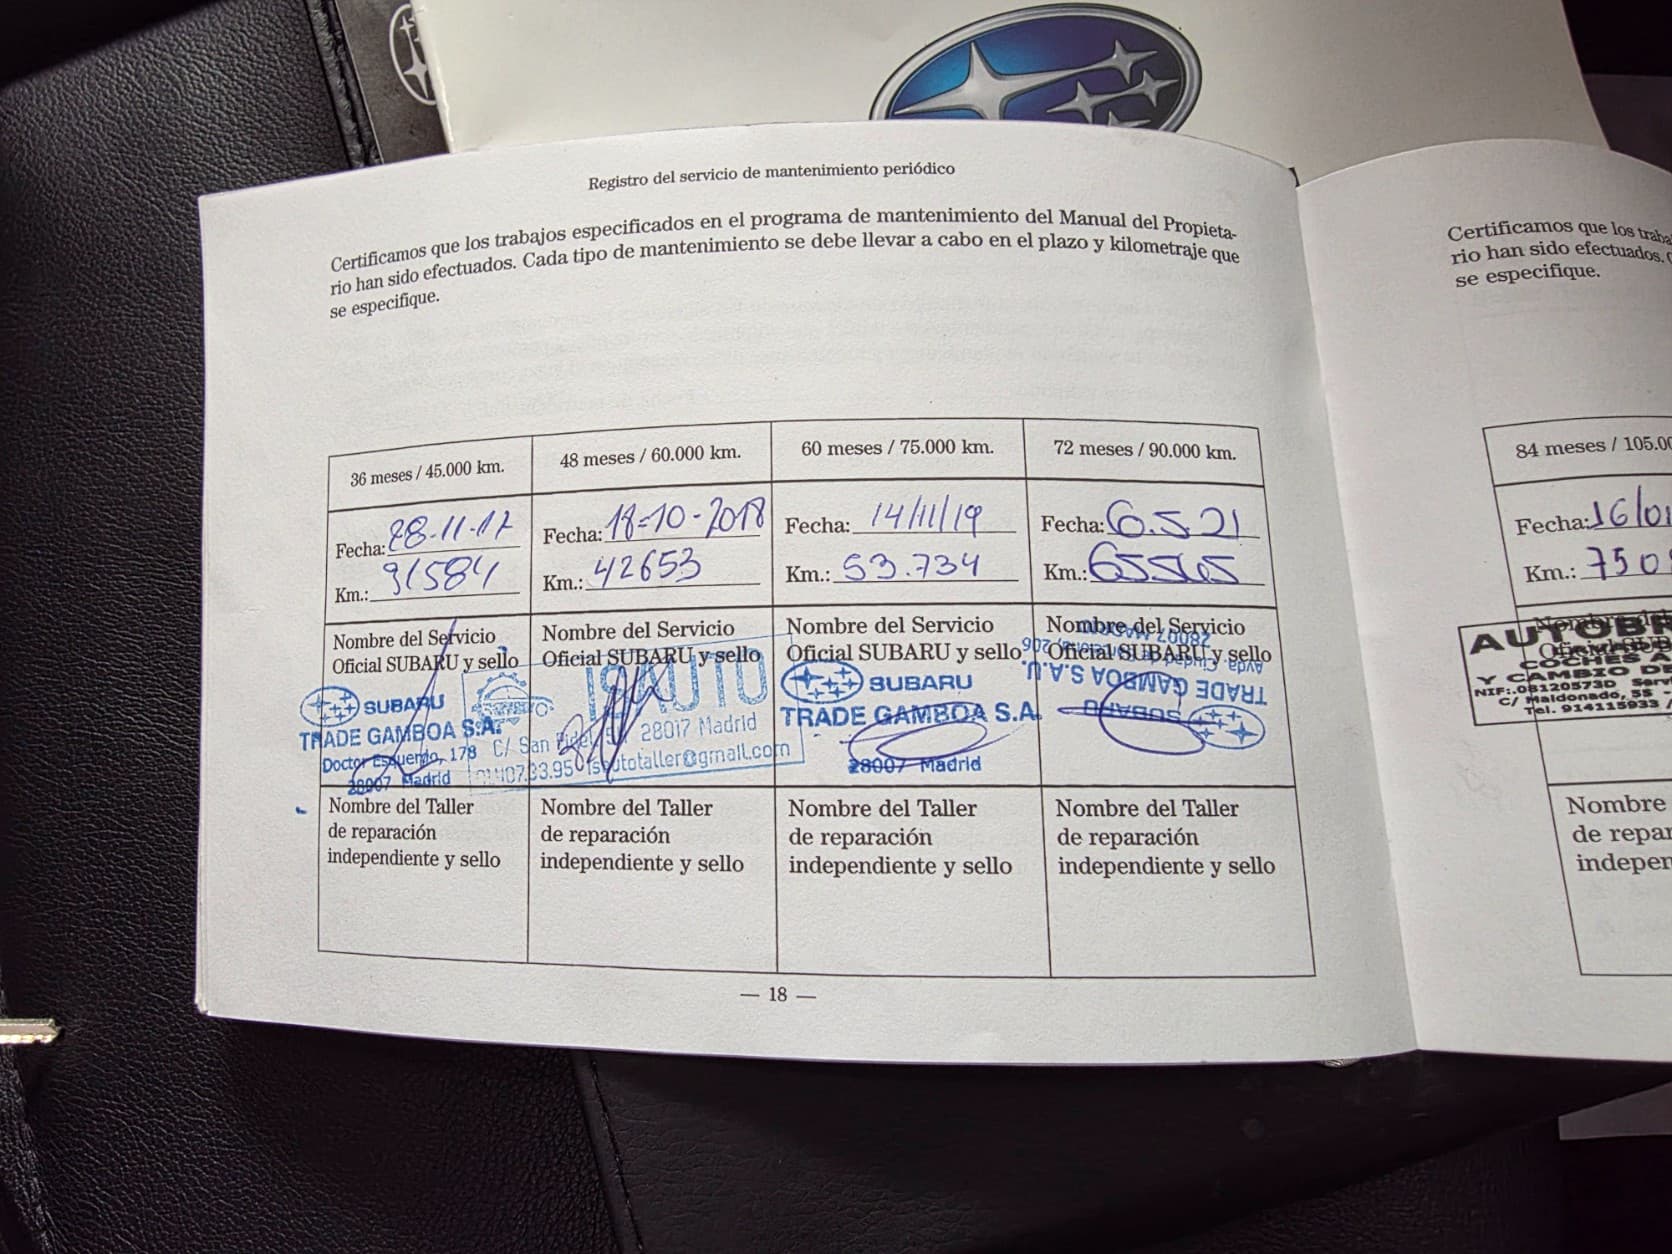 Registro del servicio de mantenimiento periódico
Certificamos que los trabajos especificados en el programa de mantenimiento del Manual del Propieta-
rio han sido efectuados. Cada tipo de mantenimiento se debe llevar a cabo en el plazo y kilometraje que
se especifique.
36 meses / 45.000 km.
Fecha: 28-11-17
Km.: 31584
Nombre del Servicio
Oficial SUBARU y sello
SUBARU
TRADE GAMBOA S.A.
Doctor Esquerdo, 178
28007 Madrid
Nombre del Taller
de reparación
independiente y sello
48 meses / 60.000 km.
Fecha: 18-10-2018
Km.: 42653
Nombre del Servicio
Oficial SUBARU y sello
C/ San 28017 Madrid
Nombre del Taller
de reparación
independiente y sello
60 meses / 75.000 km.
Fecha: 14/11/19
Km.: 53.734
Nombre del Servicio
Oficial SUBARU y sello
SUBARU
TRADE GAMBOA S.A.
28007 Madrid
Nombre del Taller
de reparación
independiente y sello
72 meses / 90.000 km.
Fecha: 6.5.21
Km.:
Nombre del Servicio
Oficial SUBARU y sello
SUBARU
TRADE GAMBOA S.A.U.
Nombre del Taller
de reparación
independiente y sello
— 18 —
Certificamos que los traba
rio han sido efectuados.
se especifique.
84 meses / 105.00
Fecha: 16/01
Km.: 750
AUTOB
COCHES A
Y CAMBIO D
NIF:.08120573D Serv
C/ Maldonado, 55 -
Tel. 914115933 /
Nombre
de repar
indepen